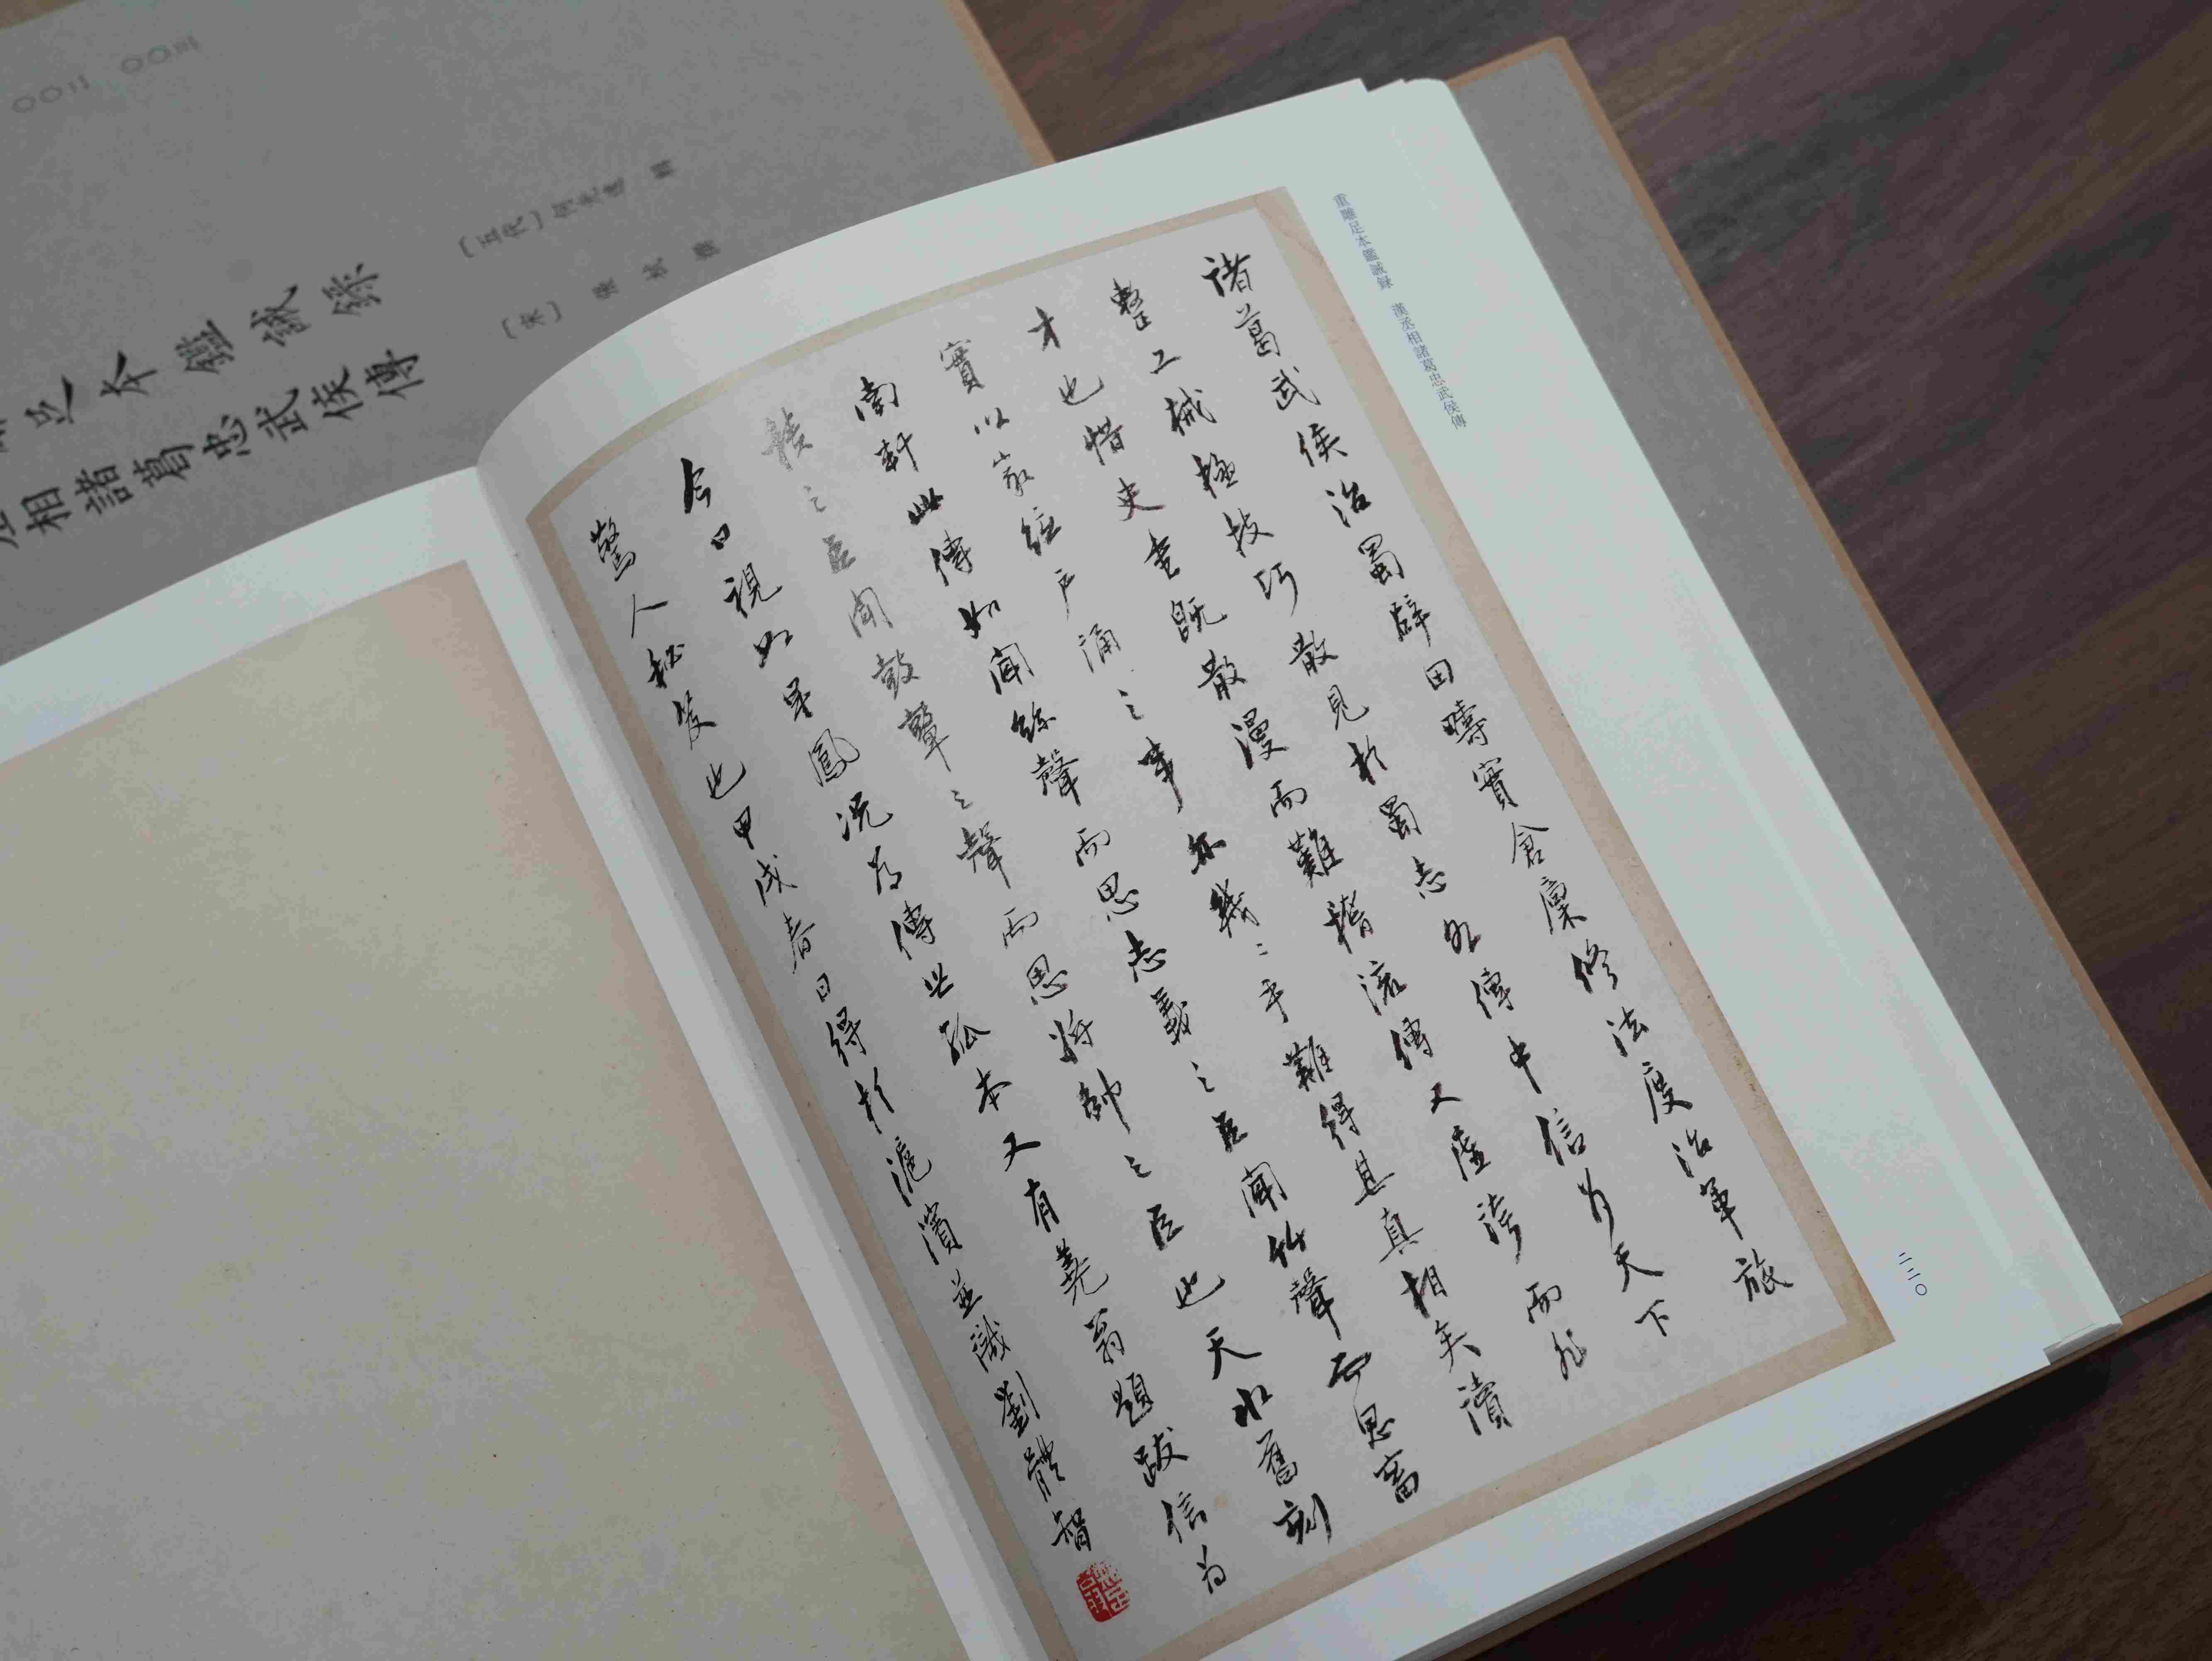 諸葛武侯治蜀辟田疇實倉廩修法度治軍旅
整工械極技巧散見於蜀志各傳中信為天下
才也惜史書既散漫而難稽流傳又虛誇而非
實以家絃户誦之事亦幾〻乎難得其真相矣讀
南軒此傳如聞絲聲而思志義之臣聞竹聲而思畜
積之臣聞鼓鼙之聲而思將帥之臣也天水舊刻
今日視如星鳳況為傳世孤本又有蕘翁題跋信為
驚人秘笈也甲戌春日得於滬濱並識劉體智
重雕足本鑑誡録　漢丞相諸葛忠武侯傳
二二〇
足本鑑誡録
相諸葛忠武侯傳
〔五代〕何光遠　輯
〔宋〕張栻　撰
〇〇二　〇〇三